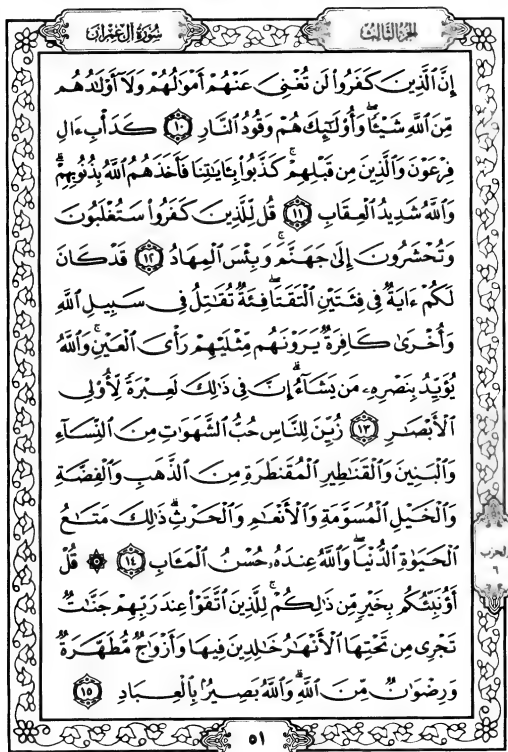 سُورَةُ آلِ عِمْرَان
الجُزْءُ الثَّالِث
إِنَّ ٱلَّذِينَ كَفَرُوا۟ لَن تُغْنِىَ عَنْهُمْ أَمْوَٰلُهُمْ وَلَآ أَوْلَـٰدُهُم
مِّنَ ٱللَّهِ شَيْـًٔا ۖ وَأُو۟لَـٰٓئِكَ هُمْ وَقُودُ ٱلنَّارِ ١٠ كَدَأْبِ ءَالِ
فِرْعَوْنَ وَٱلَّذِينَ مِن قَبْلِهِمْ ۚ كَذَّبُوا۟ بِـَٔايَـٰتِنَا فَأَخَذَهُمُ ٱللَّهُ بِذُنُوبِهِمْ ۗ
وَٱللَّهُ شَدِيدُ ٱلْعِقَابِ ١١ قُل لِّلَّذِينَ كَفَرُوا۟ سَتُغْلَبُونَ
وَتُحْشَرُونَ إِلَىٰ جَهَنَّمَ ۚ وَبِئْسَ ٱلْمِهَادُ ١٢ قَدْ كَانَ
لَكُمْ ءَايَةٌ فِى فِئَتَيْنِ ٱلْتَقَتَا ۖ فِئَةٌ تُقَـٰتِلُ فِى سَبِيلِ ٱللَّهِ
وَأُخْرَىٰ كَافِرَةٌ يَرَوْنَهُم مِّثْلَيْهِمْ رَأْىَ ٱلْعَيْنِ ۚ وَٱللَّهُ
يُؤَيِّدُ بِنَصْرِهِۦ مَن يَشَآءُ ۗ إِنَّ فِى ذَٰلِكَ لَعِبْرَةً لِّأُو۟لِى
ٱلْأَبْصَـٰرِ ١٣ زُيِّنَ لِلنَّاسِ حُبُّ ٱلشَّهَوَٰتِ مِنَ ٱلنِّسَآءِ
وَٱلْبَنِينَ وَٱلْقَنَـٰطِيرِ ٱلْمُقَنطَرَةِ مِنَ ٱلذَّهَبِ وَٱلْفِضَّةِ
وَٱلْخَيْلِ ٱلْمُسَوَّمَةِ وَٱلْأَنْعَـٰمِ وَٱلْحَرْثِ ۗ ذَٰلِكَ مَتَـٰعُ
ٱلْحَيَوٰةِ ٱلدُّنْيَا ۖ وَٱللَّهُ عِندَهُۥ حُسْنُ ٱلْمَـَٔابِ ١٤ ۞ قُلْ
أَؤُنَبِّئُكُم بِخَيْرٍ مِّن ذَٰلِكُمْ ۚ لِلَّذِينَ ٱتَّقَوْا۟ عِندَ رَبِّهِمْ جَنَّـٰتٌ
تَجْرِى مِن تَحْتِهَا ٱلْأَنْهَـٰرُ خَـٰلِدِينَ فِيهَا وَأَزْوَٰجٌ مُّطَهَّرَةٌ
وَرِضْوَٰنٌ مِّنَ ٱللَّهِ ۗ وَٱللَّهُ بَصِيرٌۢ بِٱلْعِبَادِ ١٥
الحزب
٦
٥١